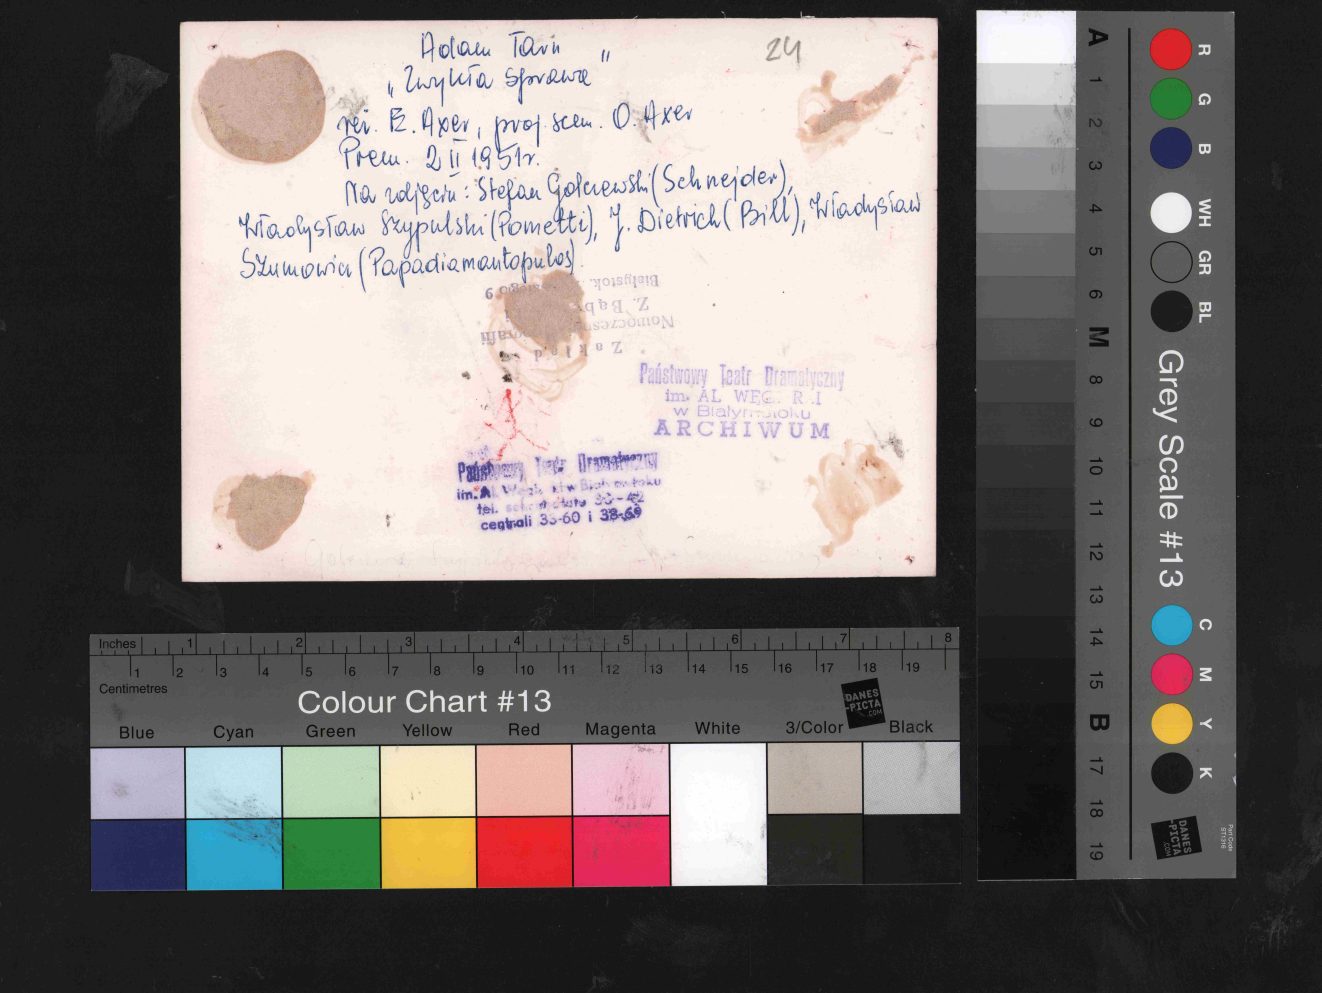 24
Adam Tarn
„Zwykła sprawa"
reż. E. Axer, proj. scen. O. Axer
Prem. 2 II 1951r.
Na zdjęciu: Stefan Golczewski (Schnejder),
Władysław Szypulski (Pometti), J. Dietrich (Bill), Władysław
Szumowicz (Papadiamantopulos)
Zakład
Nowoczesnej
Z. Bąb
Białystok.
Państwowy Teatr Dramatyczny
im. AL. WĘG. R I
w Białymstoku
ARCHIWUM
Państwowy Teatr Dramatyczny
im. Al. Węgierki w Białymstoku
tel. sekretariatu 30-42
centrali 33-60 i 38-69
Inches 1 2 3 4 5 6 7 8
1 2 3 4 5 6 7 8 9 10 11 12 13 14 15 16 17 18 19
Centimetres
Colour Chart #13
DANES
-PICTA
.COM
Blue Cyan Green Yellow Red Magenta White 3/Color Black
A 1 2 3 4 5 6 M 8 9 10 11 12 13 14 15 B 17 18 19
R G B WH GR BL
Grey Scale #13
C M Y K
DANES
-PICTA
.COM
Part Code
ST1316